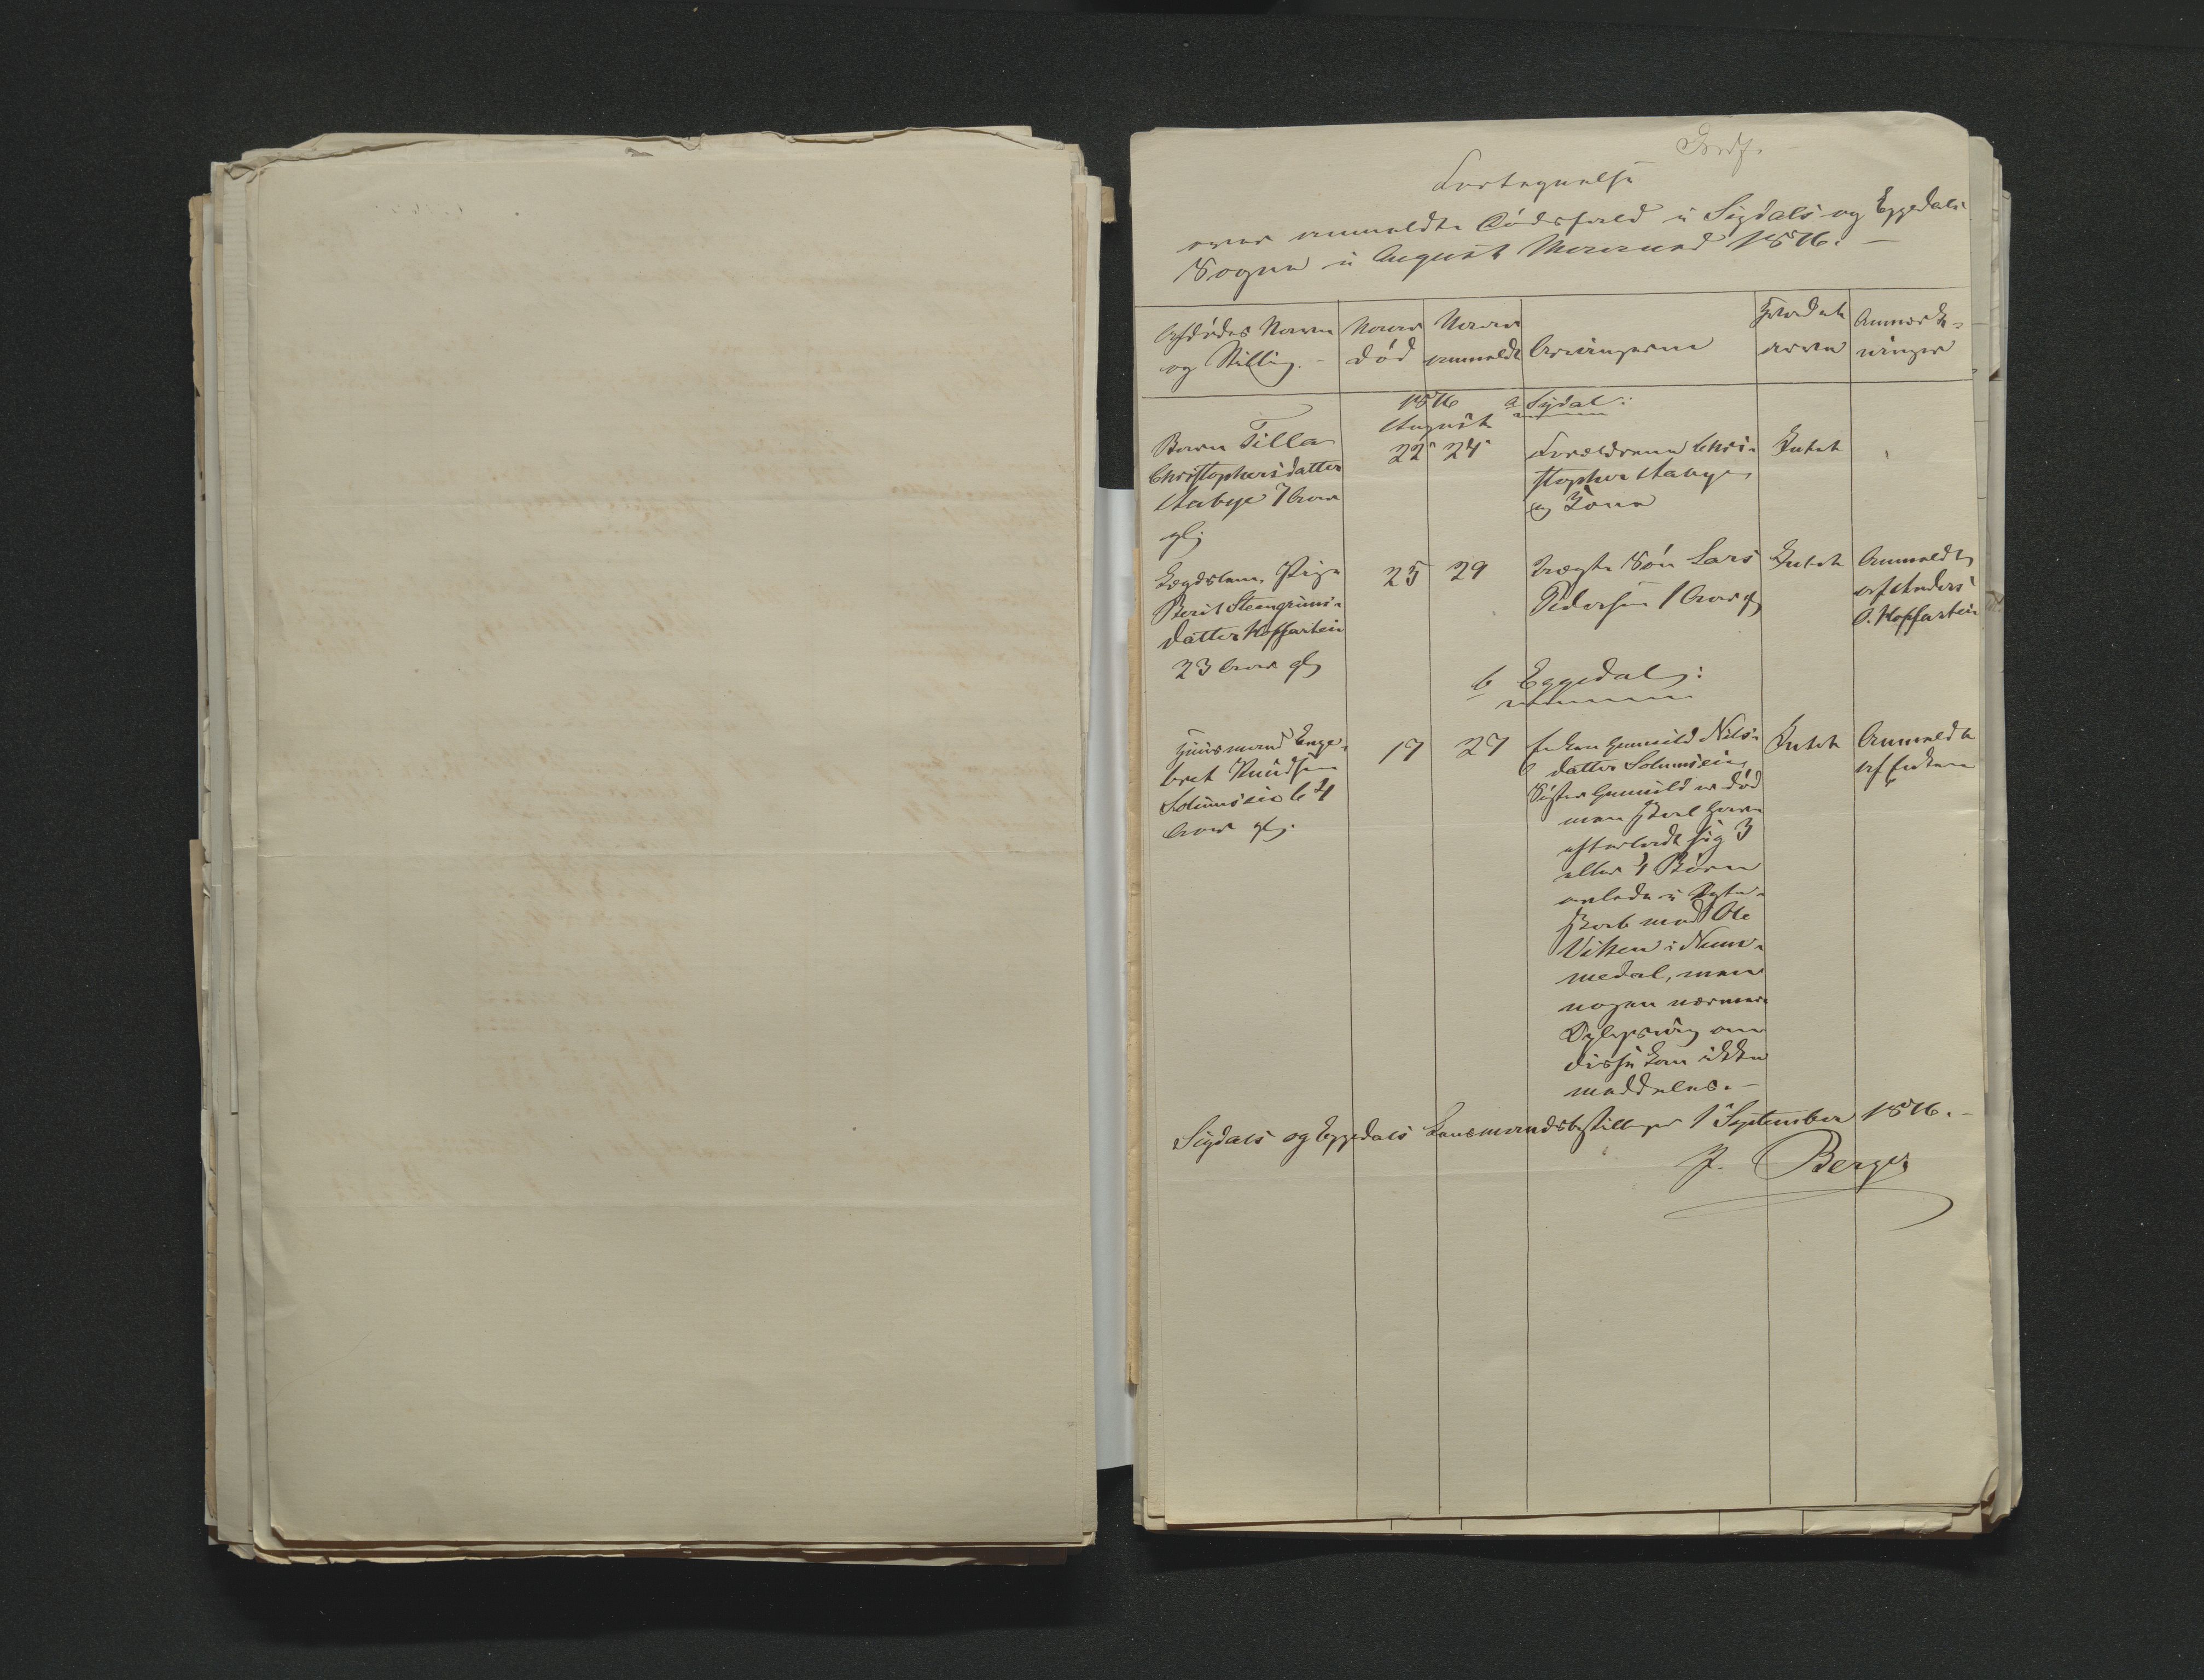 Fortegnelse
over anmeldte Dødsfald i Sigdals og Eggedals
Sogne i August Maaned 1876. –
Afdødes Navn
og Stilling. –
Naar
død
Naar
anmeldt
Arvingerne
Hvad ef-
Anmærk-
ninger
1876
August
a Sigdal:
Barn Tilla
Christophersdatter
Aabye 7 Aar
gl;
22 24
Forældrene Chri-
stopher Aabye
og Kone
Intet
Lægdslem, Pige
Berit Steengrims-
datter Kopseriein
23 Aar gl;
25 29
uægte Søn Lars
Pedersen 1 Aar gl
Intet
Anmeldt
af Anders
O. Kopseriein
b Eggedal:
Huusmand Enge-
bret Knudsen
Solumseie 64
Aar gl;
17 27
Enken Gunnild Nils-
datter Solumseie,
Søster Gunnild er død
men skal have
efterladt sig 3
eller 4 Børn
avlede i Ægte-
skab med Ole
Vikken i Num-
medal, men
nogen nærmere
Oplysning om
disse kan ikke
meddeles. –
Intet
Anmeldt
af Enken
Sigdals og Eggedals Lensmandsbestilling 1 September 1876. –
P. Berger